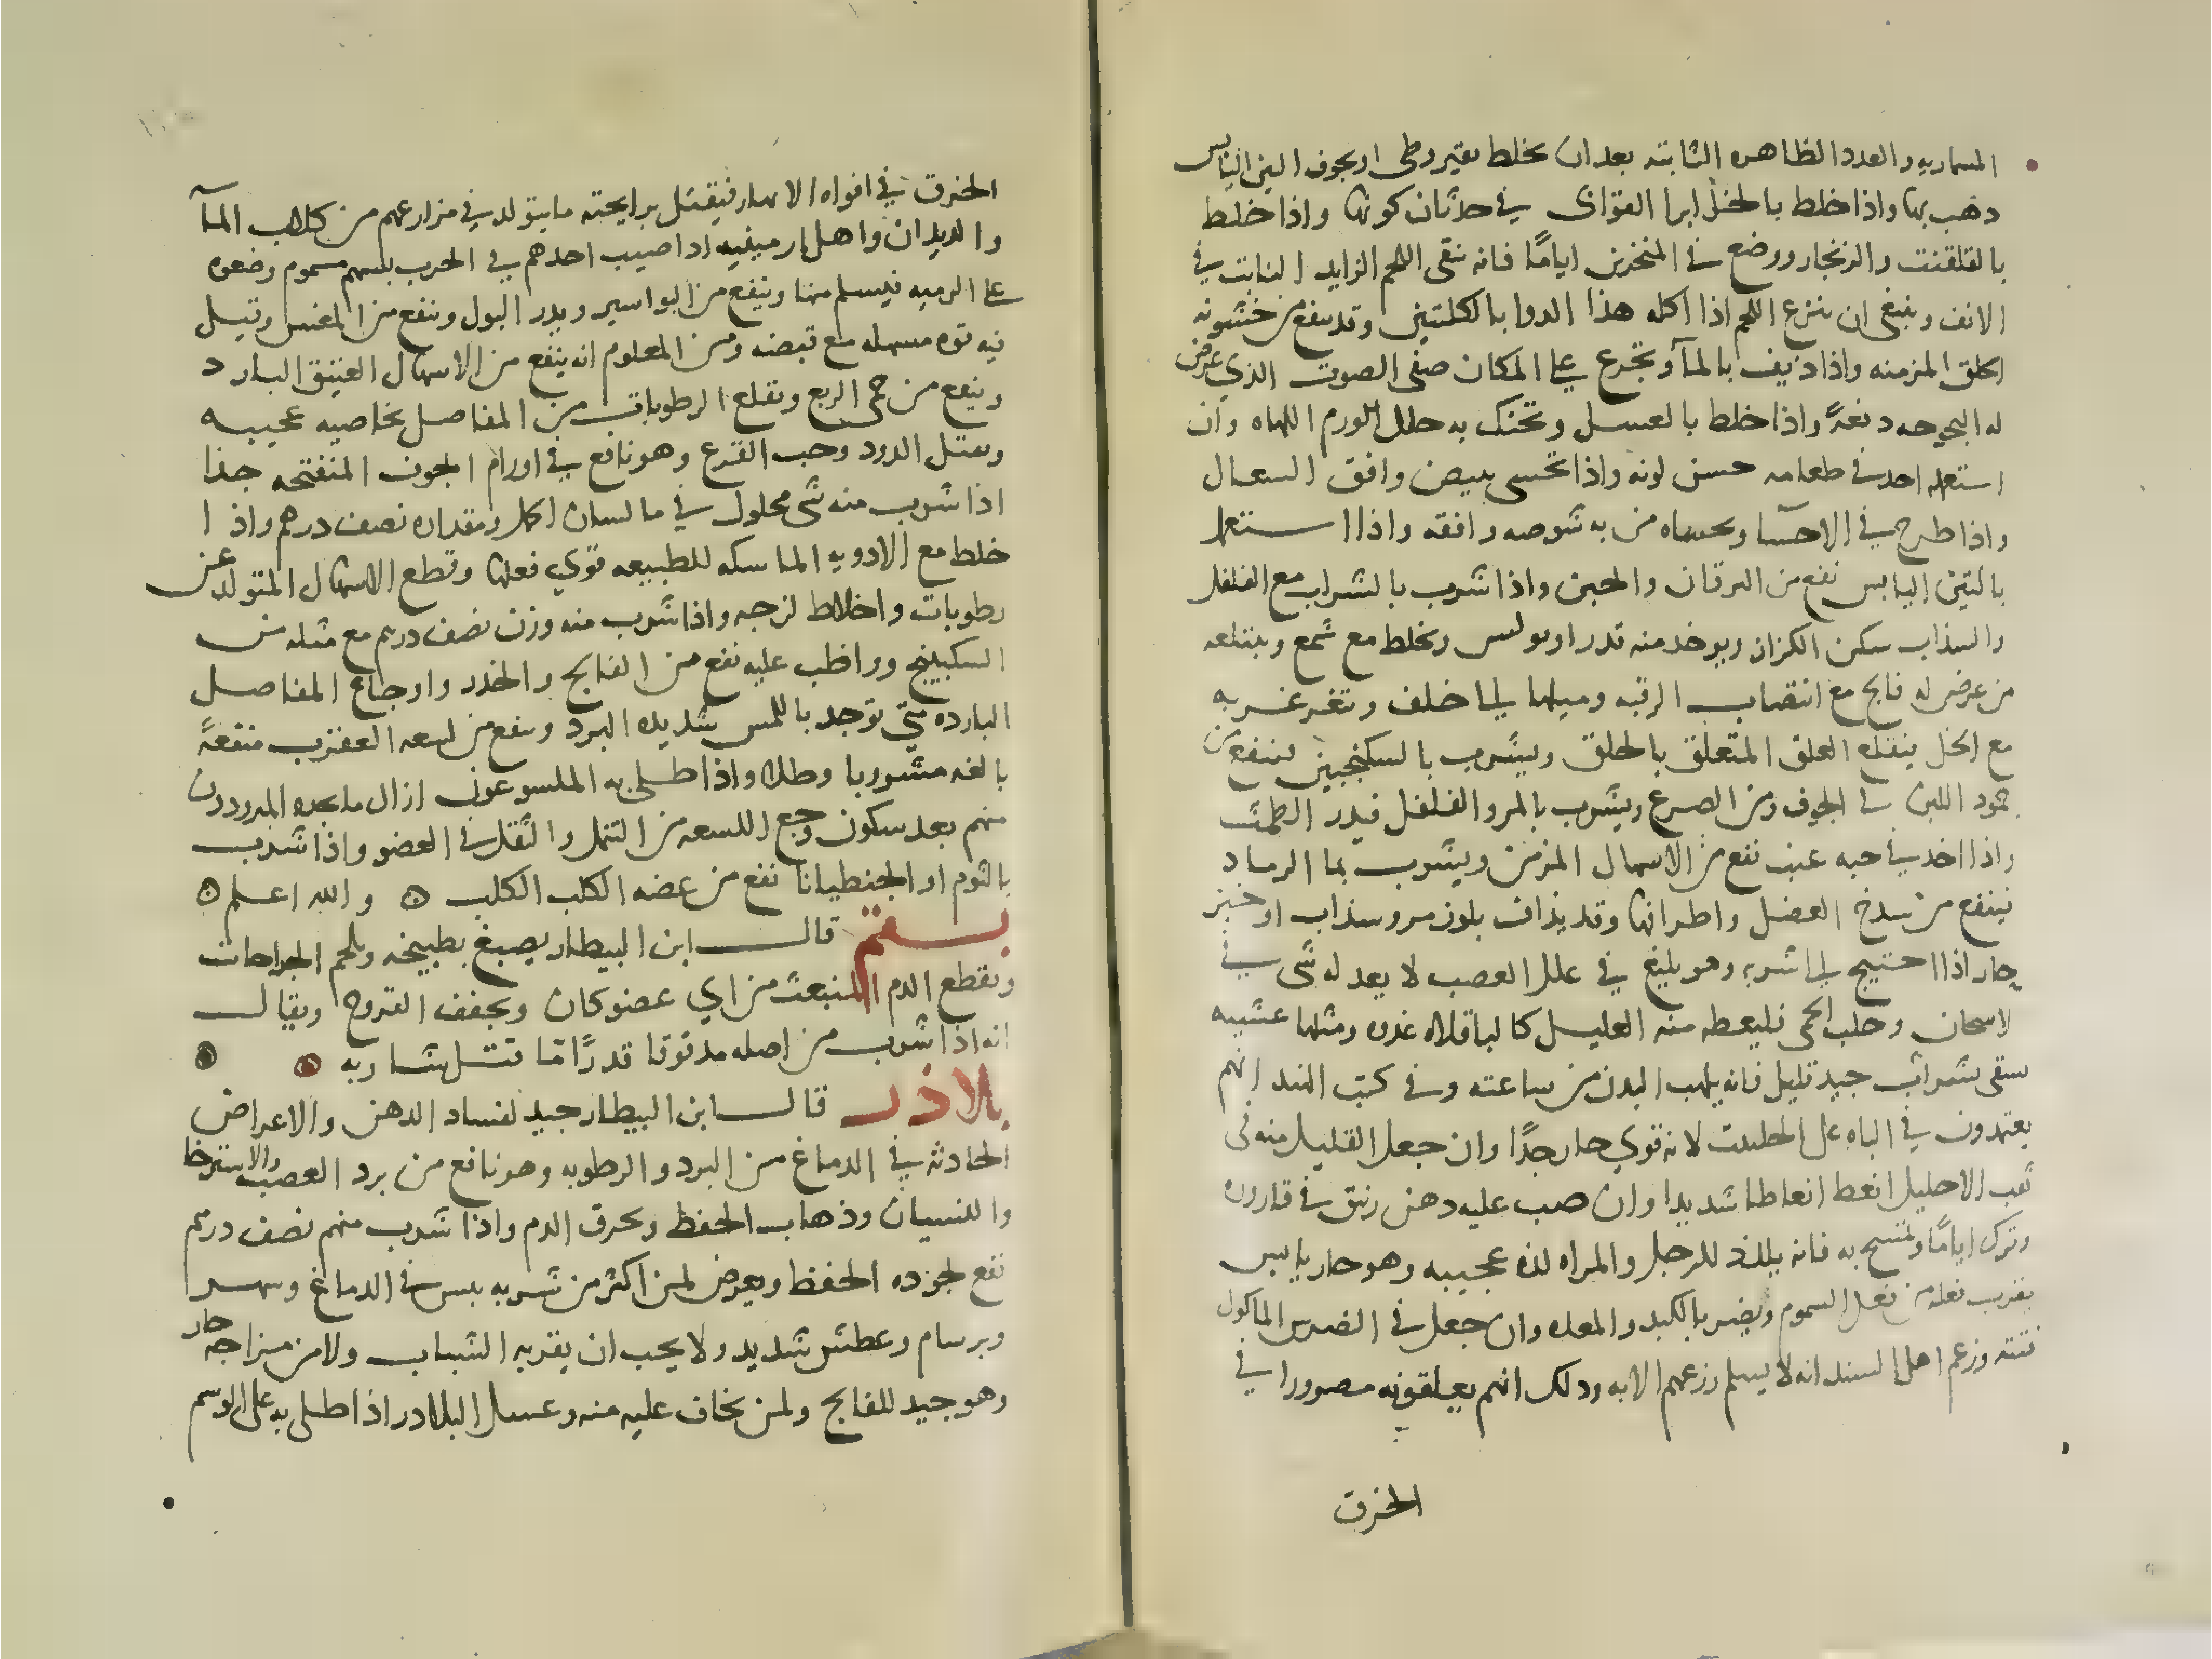 المسماريه والغدد الظاهره الثابته بعد ان يخلط بقيروطى او بجوف التين اليابس
ذهب بها واذا خلط بالخل ابرا القوابى في حدثان كونها واذا خلط
بالقلقنت والزنجار ووضع في المنخرين اياما فانه ينقى اللحم الزايد النابت في
الانف وينبغي ان ينزع اللحم اذا اكله هذا الدوا بالكلبتين وقد ينفع من خشونه
الحلق المزمنه واذا ديف بالمآ وتجرع على المكان صفى الصوت الذي عرض
له البحوحه دفعةً واذا خلط بالعسل وتحنك به حلل الورم اللهاه وان
استعمله احد في طعامه حسن لونه واذا تحسى ببيض وافق السعال
واذا طرح في الاحسآ وتحساه من به شوصه وافقه واذا استعمل
بالتين اليابس نفع من اليرقان والحبن واذا شرب بالشراب مع الفلفل
والسذاب سكن الكزاز ويوخد منه قدر اوبولس ويخلط مع شمع ويبتلعه
من عرض له فالج مع انتصاب الرقبه وميلها الى خلف ويتغرغر به
مع الخل يقلع العلق المتعلق بالحلق ويشرب بالسكنجبين لينفع من
جمود اللبن في الجوف ومن الصرع ويشرب بالمر والفلفل فيدر الطمث
واذا اخد في حبه عنب نفع من الاسهال المزمن ويشرب بما الرماد
فينفع من شدخ العضل واطرافها وقد يذاف بلوز مر وسذاب او خبز
حار اذا احتيج الى شربه وهو بليغ في علل العصب لا يعدله شى في
الاسحان وجلب الحمى فليعطه منه العليل كالباقلاه غدوه ومثلها عشيه
يسقى بشراب جيد قليل فانه يلهب البدن من ساعته وفي كتب الهند انهم
يعتمدون في الباه على الحلتيت لانه قوي حار جدًا وان جعل القليل منه في
ثقب الاحليل انعظ انعاظا شديدا وان صب عليه دهن زنبق في قاروره
وترك ايامًا وتمسح به فانه يللذ للرجل والمراه لذه عجيبه وهو حار يابس
يقرب فعله من فعل السموم ويضر بالكبد والمعده وان جعل في الضرس الماكول
فتته وزعم اهل السند انه لا يسلم زرعهم الا به وذلك انهم يعلقونه مصرورا في
الخرق
الخرق في افواه الانهار فيقتل برايحته ما يتولد في مزارعهم من كلاب المآ
والديدان واهل ارمينيه اذا اصيب احدهم في الحرب بسهم مسموم وضعوه
على الرميه فيسلم منها وينفع من البواسير ويدر البول وينفع من المغس وقيل
فيه قوه مسهله مع قبضه ومن المعلوم انه ينفع من الاسهال العتيق البارد
وينفع من حمى الربع ويقلع الرطوبات من المفاصل بخاصيه عجيبه
ويقتل الدود وحب القرع وهو نافع في اورام الجوف المنفتحه جدا
اذا شرب منه شى محلول في ما لسان الحمل ومقداره نصف درهم واذا
خلط مع الادويه الماسكه للطبيعه قوي فعلها وقطع الاسهال المتولد عن
رطوبات واخلاط لزجه واذا شرب منه وزن نصف درهم مع مثله من
السكبينج وواظب عليه نفع من الفالج والخدر واوجاع المفاصل
البارده متى توجد باللمس شديده البرد وينفع من لسعه العقرب منفعةً
بالغه مشوربا وطلا واذا طلى به الملسوعون ازال ما يجده المبرودون
منهم بعد سكون وجع اللسعه من التنمل والثقل في العضو واذا شرب
بالثوم او الجنطيانا نفع من عضه الكلب الكلب ۞ والله اعلم ۞
بسفتم قال ابن البيطار يصبغ بطبيخه ويلحم الجراحات
ويقطع الدم المنبعث من اي عضو كان ويجفف القروح ويقال
انه اذا شرب من اصله مدقوقا قدرًا مّا قتل شاربه
بلاذر قال ابن البيطار جيد لفساد الدهن والاعراض
الحادثه في الدماغ من البرد والرطوبه وهو نافع من برد العصب والاسترخا
والنسيان وذهاب الحفظ ويحرق الدم واذا شرب منهم نصف درهم
نفع لجوده الحفظ ويعرض لمن اكثر من شربه يبس في الدماغ وسهر
وبرسام وعطش شديد ولا يجب ان يقربه الشباب ولا من مزاجه حار
وهو جيد للفالج ولمن يخاف عليه منه وعسل البلادر اذا طلى به على الوسم